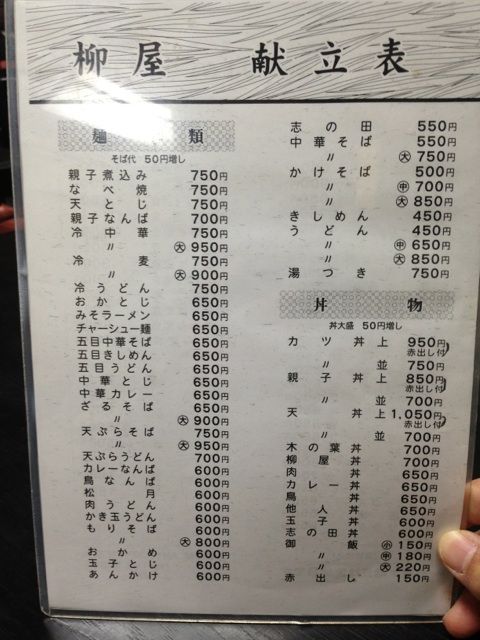 柳屋 献立表
麺類
そば代 50円増し
親子煮込み 750円
なべ焼 750円
天とじ 750円
親子なんば 700円
冷中華 750円
〃 大 950円
冷麦 750円
〃 大 900円
冷うどん 750円
おかとじ 650円
みそラーメン 650円
チャーシュー麺 650円
五目中華そば 650円
五目きしめん 650円
五目うどん 650円
中華とじ 650円
中華カレー 650円
ざるそば 650円
〃 大 900円
天ぷらそば 750円
〃 大 950円
天ぷらうどん 700円
カレーなんば 600円
鳥なんば 600円
松月 600円
肉うどん 600円
かき玉うどん 600円
もりそば 600円
〃 大 800円
おかめ 600円
玉子とじ 600円
あんかけ 600円
志の田 550円
中華そば 550円
〃 大 750円
かけそば 500円
〃 中 700円
〃 大 850円
きしめん 450円
うどん 450円
〃 中 650円
〃 大 850円
湯つき 750円
丼物
丼大盛 50円増し
カツ丼上 950円
赤出し付
〃 並 750円
親子丼上 850円
赤出し付
〃 並 700円
天丼上 1,050円
赤出し付
〃 並 700円
木の葉丼 700円
柳屋丼 700円
肉丼 650円
カレー丼 650円
鳥丼 650円
他人丼 650円
玉子丼 600円
志の田丼 600円
御飯 小 150円
〃 中 180円
〃 大 220円
赤出し 150円